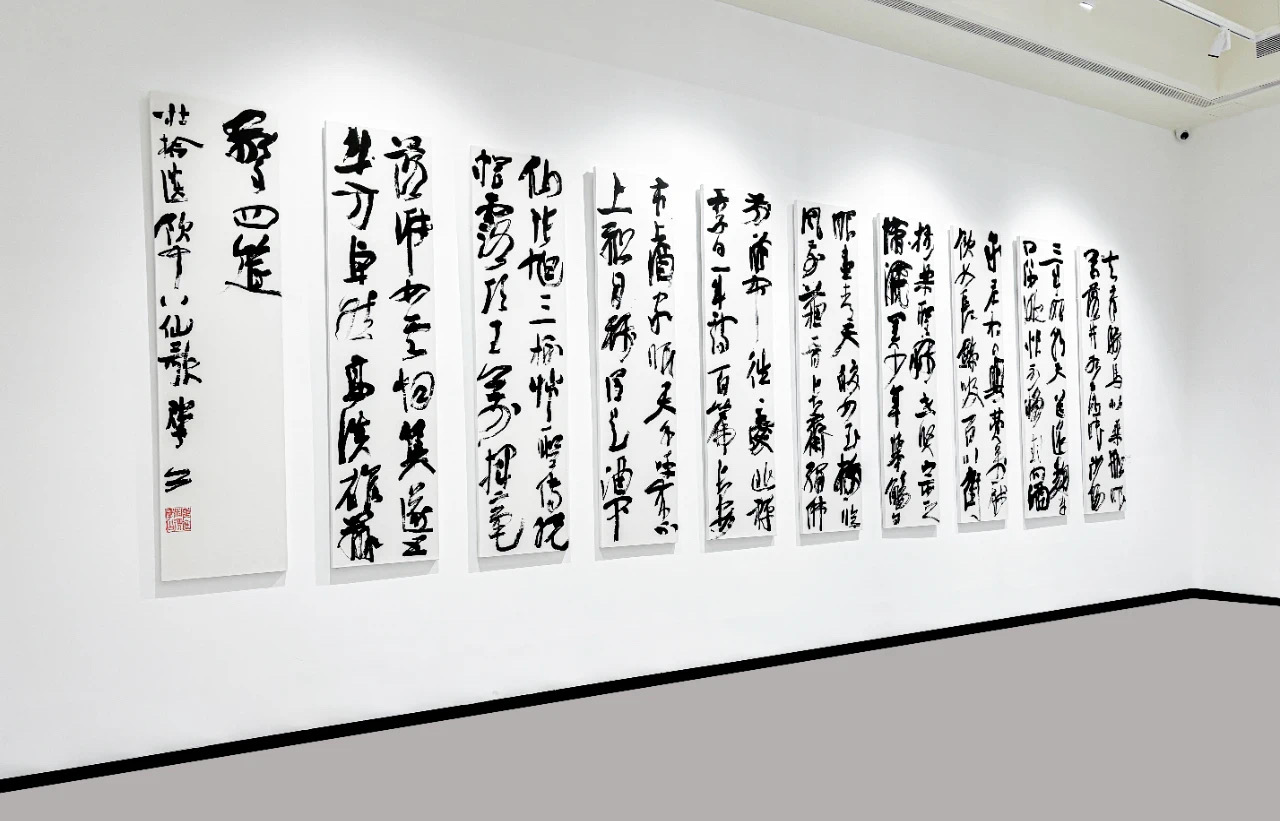 知章騎馬似乘船眼
花落井水底眠汝陽
三斗始朝天道逢麴車
口流涎恨不移封向酒
泉左相日興費萬錢
飲如長鯨吸百川銜
杯樂聖稱世賢宗之
瀟灑美少年舉觴白
眼望青天皎如玉樹臨
風前蘇晉長齋繡佛
前醉中往往愛逃禪
李白一斗詩百篇長安
市上酒家眠天子呼來不
上船自稱臣是酒中
仙張旭三杯草聖傳脫
帽露頂王公前揮毫
落紙如雲烟焦遂五
斗方卓然高談雄辯
驚四筵
杜拾遺飲中八仙歌